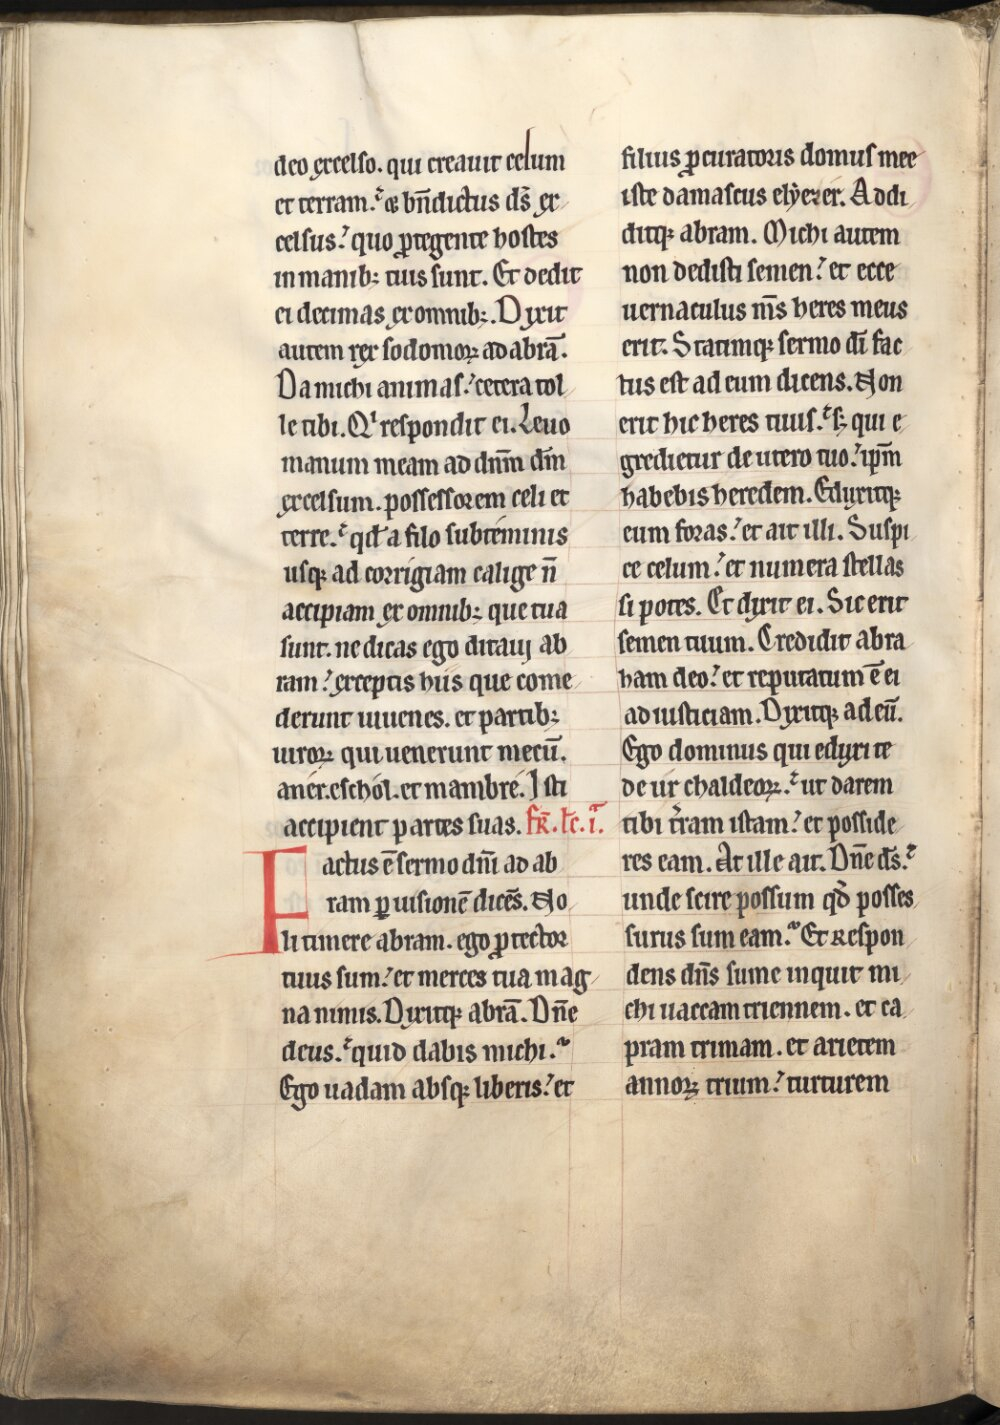 deo excelso. qui creauit celum
et terram. et bn̄dictus dn̄s ex
celsus. quo ꝓtegente hostes
in manib; tuis sunt. Et dedit
ei decimas ex omnib;. Dixit
autem rex sodomoꝝ ad abrā.
Da michi animas. cetera tol
le tibi. Qͥ respondit ei. Leuo
manum meam ad dn̄m dm̄
excelsum. possessorem celi et
terre. qd̓ a filo subtéminis
usqꝫ ad corrigiam calige n̄
accipiam ex omnib; que tua
sunt. ne dicas ego ditaui ab
ram. exceptis hiis que come
derunt iuuenes. et partib;
uiroꝝ qui uenerunt mecū.
anér. eschól. et mambré. Isti
accipient partes suas. fR̄. lc̄. ia.
Factus ē sermo dn̄i ad ab
ram ꝑ uisionē dicēs. No
li timere abram. ego ꝓtector
tuus sum. et merces tua mag
na nimis. Dixitqꝫ abrā. Dn̄e
deus. quid dabis michi.
Ego uadam absqꝫ liberis. et
filius ꝓcuratoris domus mee
iste damascus elyezér. Addi
ditqꝫ abram. Michi autem
non dedisti semen. et ecce
uernaculus m̄s heres meus
erit. Statimqꝫ sermo dī fac
tus est ad eum dicens. Non
erit hic heres tuus. sꝫ qui e
gredietur de utero tuo. ip̄m
habebis heredem. Eduxitqꝫ
eum foras. et ait illi. Suspi
ce celum. et numera stellas
si potes. Et dixit ei. Sic erit
semen tuum. Credidit abra
ham deo. et reputatum ē ei
ad iusticiam. Dixitqꝫ ad eū.
Ego dominus qui eduxi te
de úr chaldeoꝝ. ut darem
tibi t̄ram istam. et posside
res eam. At ille ait. Dn̄e ds̄.
unde scire possum qd̓ posses
surus sum eam. Et Respon
dens dn̄s sume inquit mi
chi uaccam triennem. et ca
pram trimam. et arietem
annoꝝ trium. turturem